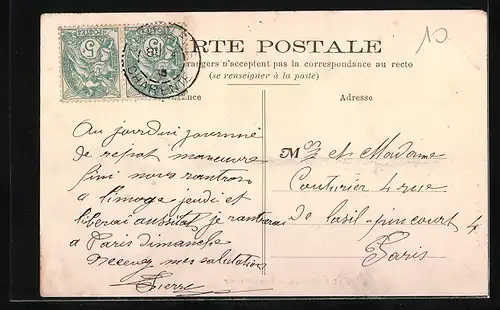 CARTE POSTALE
étrangers n'acceptent pas la correspondance au recto
(se renseigner à la poste)
Correspondance
Adresse
5
POSTES
5
POSTES
CHARENTE
10
Au jourdui journné
de repot maneuvre
fini nous rantron
a limoge jeudi et
liberai aussitot je rantrerai
a Paris dimanche
Recevez mes salutation
Pierre
Mr et Madame
Couturier 4 rue
do lasil-pincourt 4
Paris